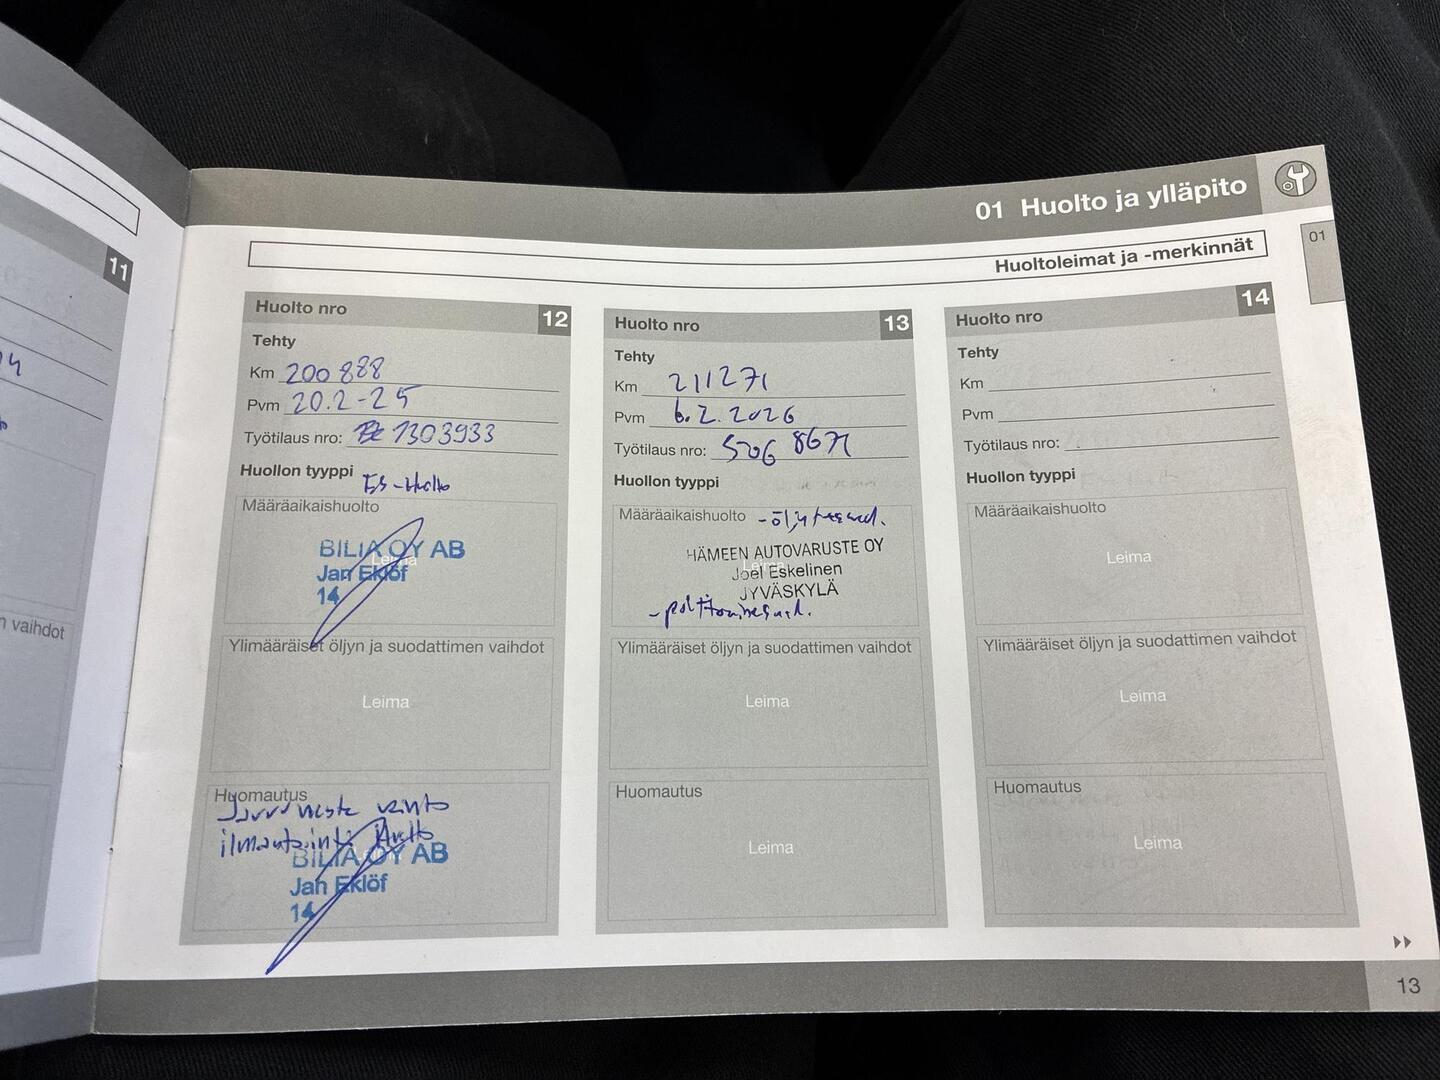 11
n vaihdot
01 Huolto ja ylläpito
01
Huoltoleimat ja -merkinnät
Huolto nro 12
Tehty
Km 200 888
Pvm 20.2-25
Työtilaus nro: 1303933
Huollon tyyppi
Määräaikaishuolto
Leima
BILIA OY AB
Jan Eklöf
14
Ylimääräiset öljyn ja suodattimen vaihdot
Leima
Huomautus
Jarruneste vaihto
ilmastointi Huolto
BILIA OY AB
Jan Eklöf
14
Huolto nro 13
Tehty
Km 211271
Pvm 6.2.2026
Työtilaus nro: 506 8671
Huollon tyyppi
Määräaikaishuolto
HÄMEEN AUTOVARUSTE OY
Leima
Joel Eskelinen
JYVÄSKYLÄ
Ylimääräiset öljyn ja suodattimen vaihdot
Leima
Huomautus
Leima
Huolto nro 14
Tehty
Km
Pvm
Työtilaus nro:
Huollon tyyppi
Määräaikaishuolto
Leima
Ylimääräiset öljyn ja suodattimen vaihdot
Leima
Huomautus
Leima
13